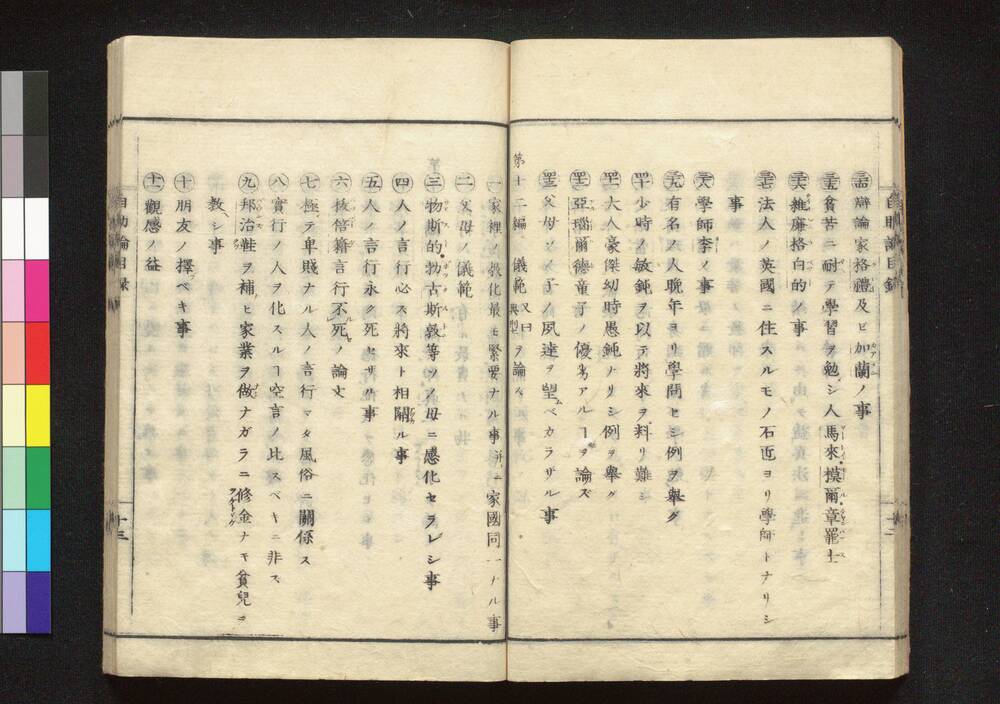 ㉞辯論家格禮及ビ加蘭ノ事
㉟貧苦ニ耐テ學習ヲ勉シ人馬來摸爾章罷士
㊱維廉格白的ノ事
㊲法人ノ英國ニ住スルモノ石匠ヨリ學師トナリシ
事
㊳學師李ノ事
㊴有名ノ人晩年ヨリ學問セシ例ヲ舉グ
㊵少時ノ敏鈍ヲ以テ將來ヲ料リ難シ
㊶大人豪傑幼時愚鈍ノリシ例ヲ舉グ
㊷亞瑙爾德童子ノ優劣アルヿヲ論ズ
㊸父母ソノ子ノ夙達ヲ望ベカラザル事
第十二編 儀範 又曰典型ヲ論ズ
一家裡ノ敎化最モ緊要ナル事 并一家國同一ナル事
二父母ノ儀範
㊂物斯的勃古斯敦等ソノ母ニ感化セラレシ事
㊃人ノ言行必ス將來ト相關ル事
㊄人ノ言行永ク死セザル事
㊅抜倍籍言行不死ノ論文
七極テ卑賤ナル人ノ言行マタ風俗ニ關係ス
八實行ノ人ヲ化スルヿ空言ノ比スベキニ非ス
㊈邦治鞋ヲ補ヒ家業ヲ做ナガラニ修金ナキ貧兒ヲ
敎シ事
㊉朋友ノ擇ベキ事
⑪觀感ノ益
自助論目錄
十三